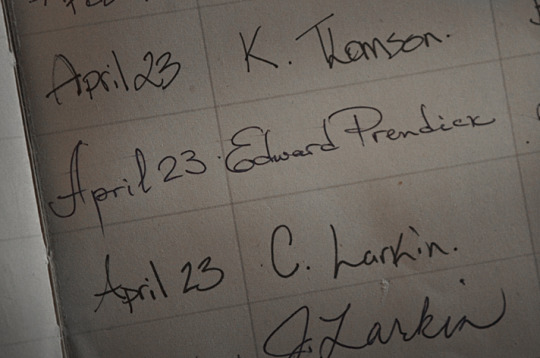 April 23 K. Thomson.
April 23 Edward Prendick
April 23 C. Larkin.
J. Larkin